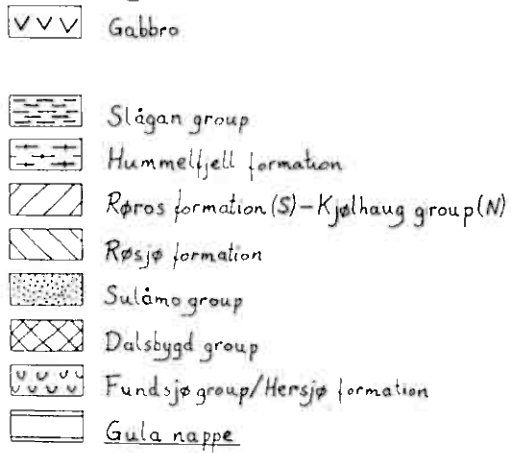 Gabbro
Slågan group
Hummelfjell formation
Røros formation (S)–Kjølhaug group (N)
Røsjø formation
Sulåmo group
Dalsbygd group
Fundsjø group/Hersjø formation
Gula nappe